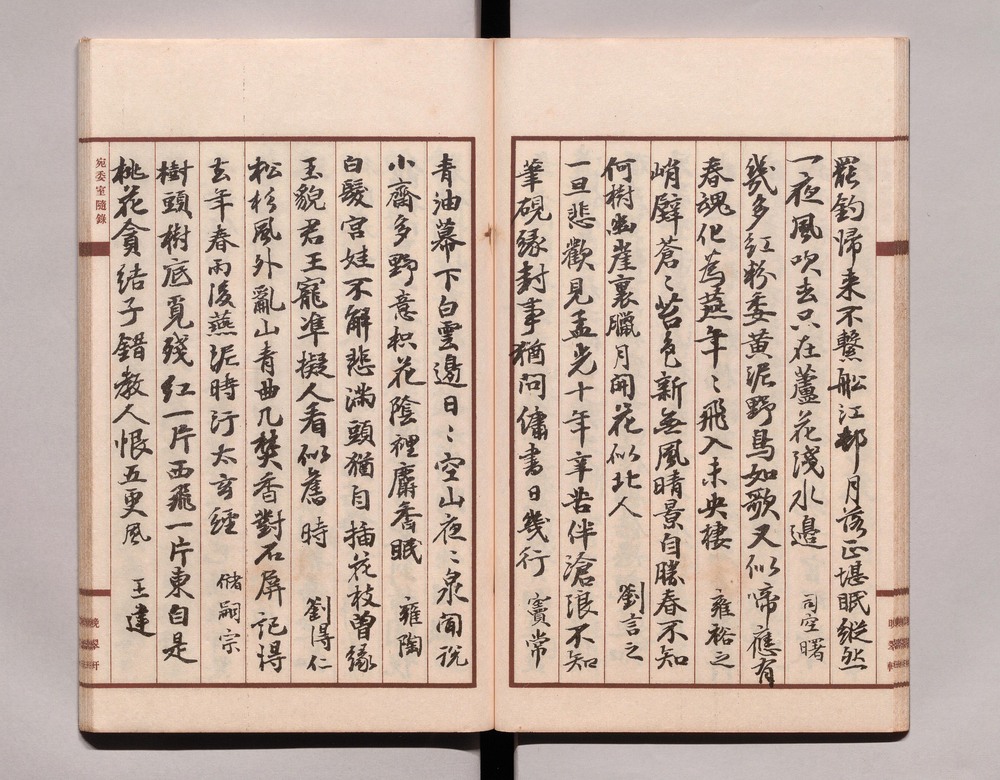 罷釣歸来不繫舩江邨月落正堪眠縱然
一夜風吹去只在蘆花淺水邊 司空曙
幾多紅粉委黃泥野鳥如歌又似啼應有
春魂化為燕年〻飛入未央棲 雍裕之
峭壁蒼〻苔色新無風晴景自勝春不知
何樹幽崖裏臘月開花似北人 劉言之
一旦悲歡見孟光十年辛苦伴滄浪不知
筆硯緣封事猶問傭書日幾行 竇常
青油幕下白雲邊日〻空山夜〻泉聞說
小齋多野意枳花陰裡麝香眠 雍陶
白髮宮娃不解悲滿頭猶自插花枝曾緣
玉貌君王寵准擬人看似舊時 劉得仁
松杉風外亂山青曲几焚香對石屏記得
去年春雨後燕泥時汙太玄經 儲嗣宗
樹頭樹底覓殘紅一片西飛一片東自是
桃花貪結子錯教人恨五更風 王建
宛委室隨錄